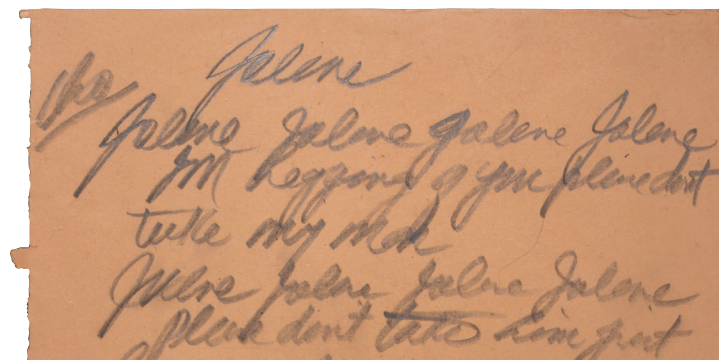 Jolene
Cho
Jolene Jolene Jolene Jolene
I'm begging of you please dont
take my man
Jolene Jolene Jolene Jolene
please dont take him just